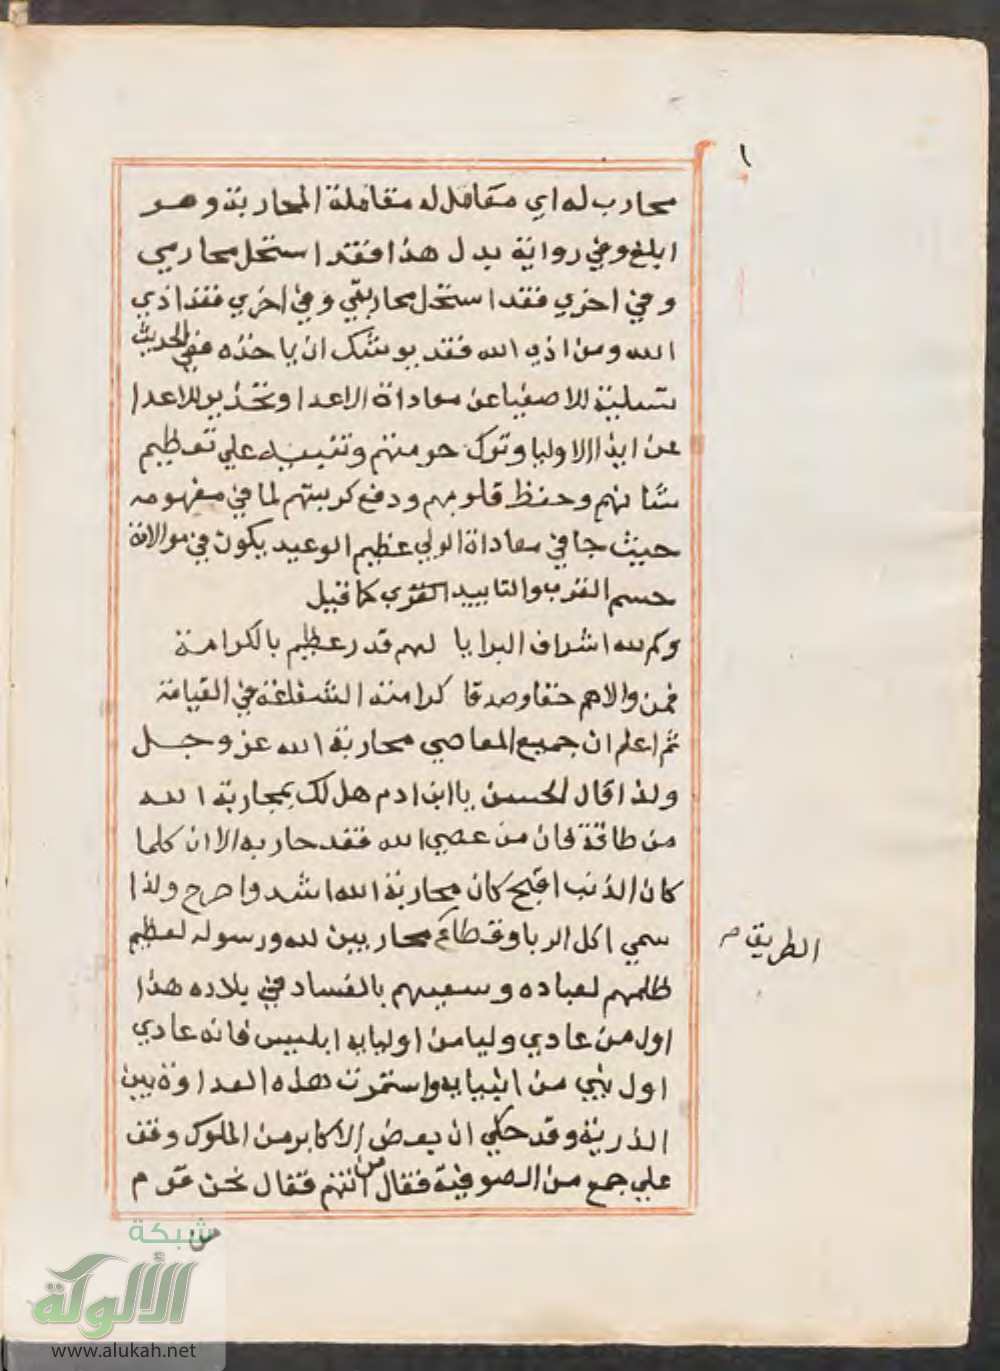 ١
محارب له اي مقاقل له مقاملة المحاربة وهو
ابلغ وفي رواية بدل هذا فقد استحل محارمي
وفي اخري فقد استحل محاربتي وفي اخري فقد اذي
الله ومن اذي الله فقد يوشك ان ياخذه ففي الحديث
تسلية للاصفيا عن معاداة الاعدا وتحذير للاعدا
عن ايذا الاوليا وترك حرمتهم وتنبيه علي تعظيم
شانهم وحفظ قلوبهم ودفع كربتهم لما في مفهومه
حيث جا في معاداة الولي عظيم الوعيد يكون في موالاته
جسيم القرب والتاييد كما قيل
وكم لله اشراف البرايا لهم قدر عظيم بالكرامة
فمن والاهم حقا وصدقا كرامته الشفاعة في القيامة
ثم اعلم ان جميع المعاصي محاربة الله عز وجل
ولذا قال الحسن يا ابن ادم هل لك بمحاربة الله
من طاقة فان من عصي الله فقد حاربه الا ان كلما
كان الذنب اقبح كان محاربة الله اشد واصرح ولذا
سمي اكل الربا وقطاع محاربين لله ورسوله لعظيم
الطريق صح
ظلمهم لعباده وسعيهم بالفساد في بلاده هذا
اول من عادي وليا من اوليايه ابليس فانه عادي
اول نبي من انبيايه واستمرت هذه العداوة بين
الذرية وقد حكي ان بعض الاكابر من الملوك وقف
علي جمع من الصوفية فقال من انتم فقال نحن قوم
من
شبكة
الألوكة
www.alukah.net